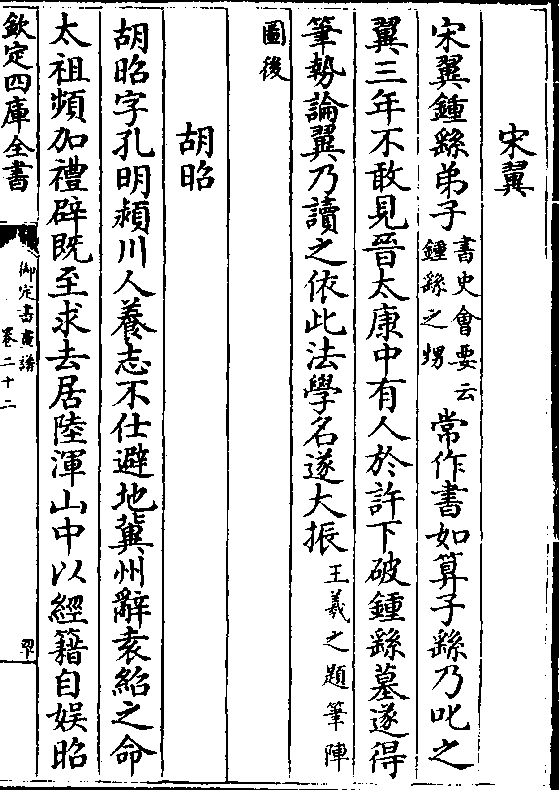 宋翼
宋翼鍾繇弟子書史會要云鍾繇之甥常作書如算子繇乃叱之
翼三年不敢見晉太康中有人於許下破鍾繇墓遂得
筆勢論翼乃讀之依此法學名遂大振王羲之題筆陣
圖後
胡昭
胡昭字孔明潁川人養志不仕避地冀州辭袁紹之命
太祖頻加禮辟既至求去居陸渾山中以經籍自娱昭
欽定四庫全書
御定書畫譜
卷二十二